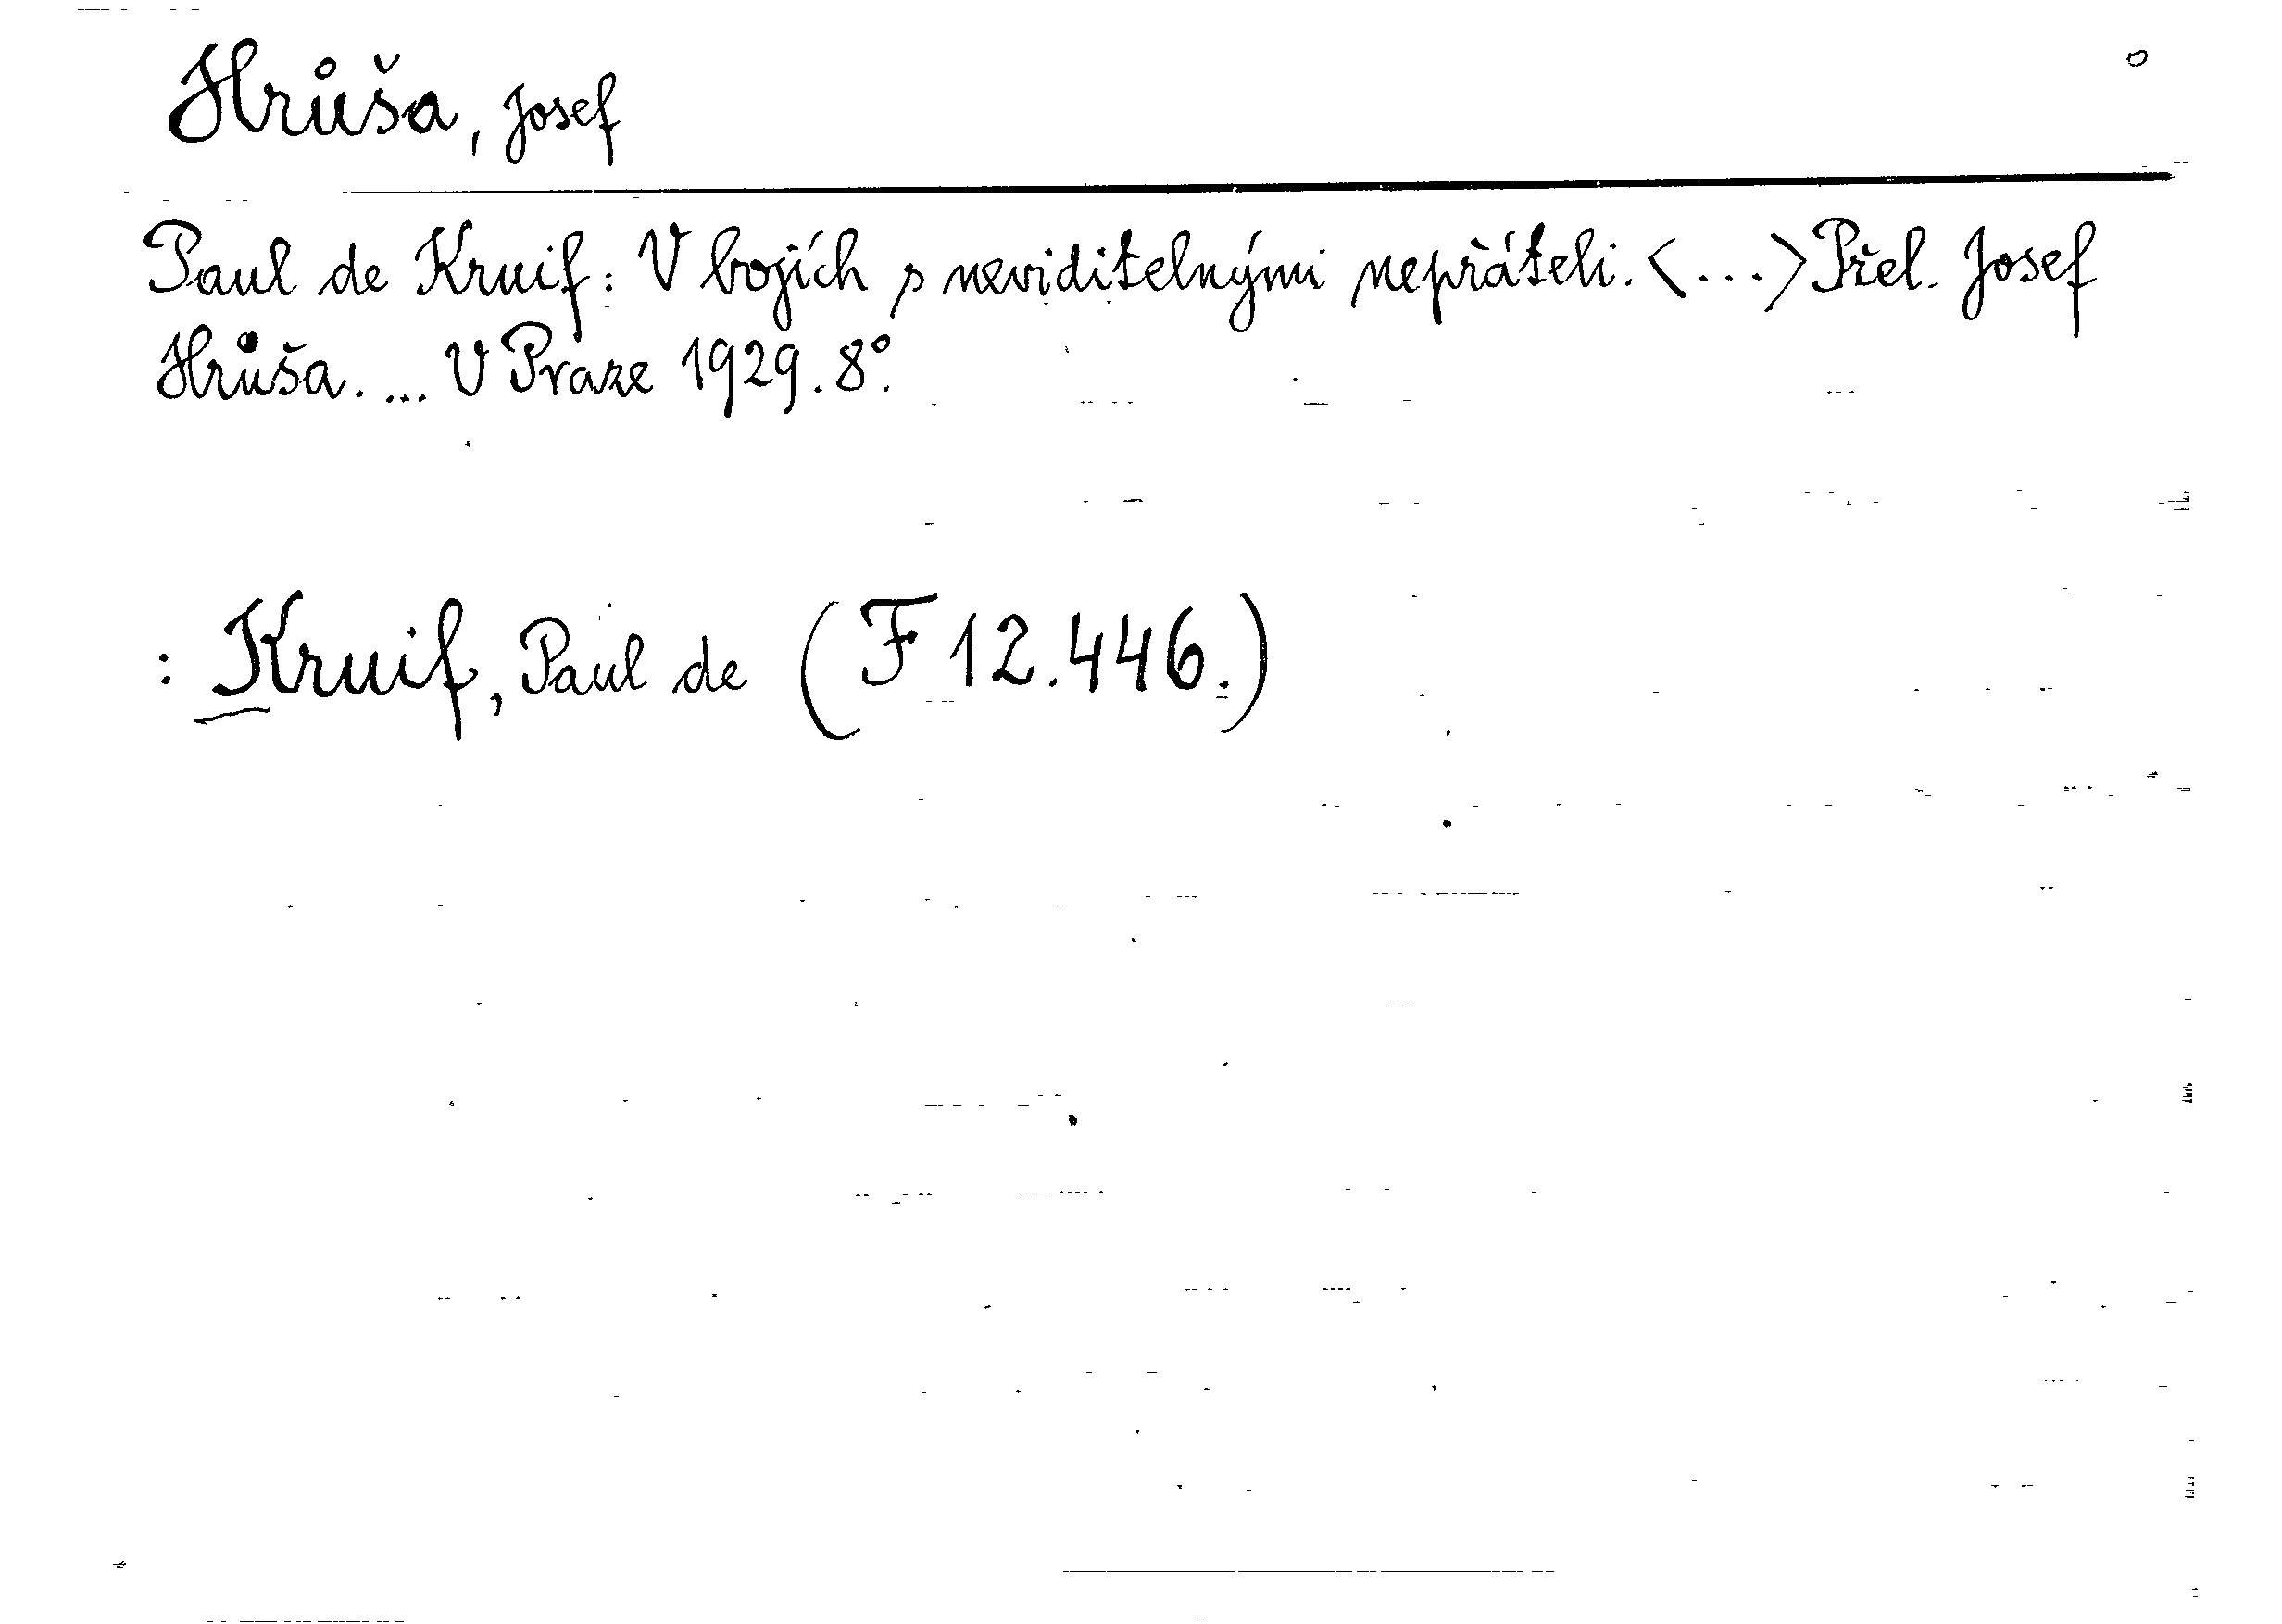 Hrůša, Josef
Paul de Kruif: V bojích s neviditelnými nepřáteli. <...> Přel. Josef
Hrůša. ... V Praze 1929. 8°.
: Kruif, Paul de (F 12.446.)